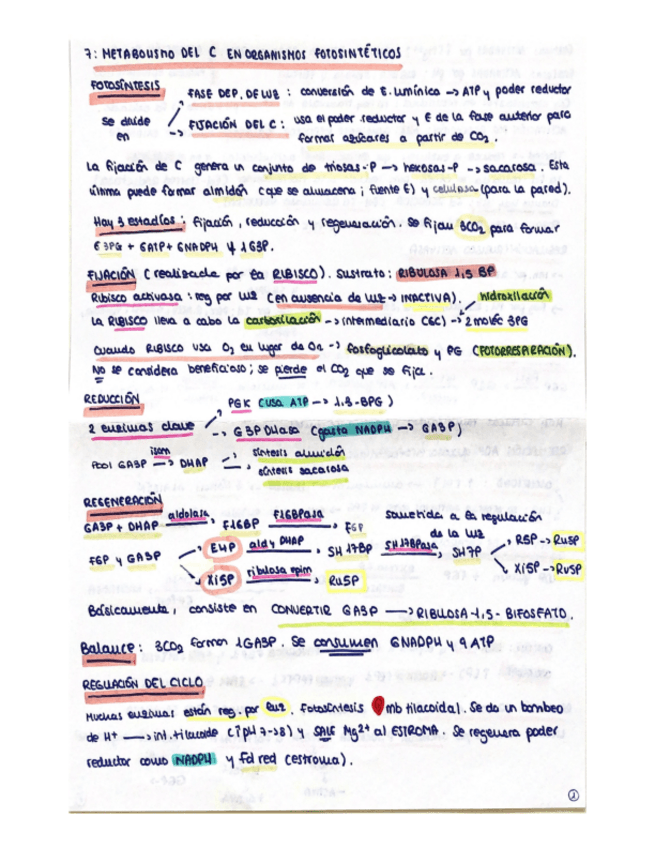 7: METABOLISMO DEL C EN ORGANISMOS FOTOSINTÉTICOS
FOTOSÍNTESIS
se divide en
FASE DEP. DE LUZ : conversión de E. lumínica -> ATP y poder reductor
-> FIJACIÓN DEL C : usa el poder reductor y E de la fase anterior para
formar azúcares a partir de CO2.
La fijación de C genera un conjunto de triosas-P -> hexosas-P -> sacarosa. Esta
última puede formar almidón (que se almacena ; fuente E) y celulosa (para la pared).
Hay 3 estadíos : fijación, reducción y regeneración. Se fijan 3CO2 para formar
6 3PG + 6ATP + 6NADPH y 1 G3P.
FIJACIÓN (realizada por la RIBISCO). Sustrato : RIBULOSA 1,5 BP
Ribisco activasa : reg por luz (en ausencia de luz -> INACTIVA).
hidroxilación
La RIBISCO lleva a cabo la carboxilación -> intermediario (6C) -> 2 moléc 3PG
Cuando RIBISCO usa O2 en lugar de -> fosfoglicolato y PG (FOTORRESPIRACIÓN).
No se considera beneficioso ; se pierde el CO2 que se fija.
REDUCCIÓN
2 enzimas clave
PGK (usa ATP -> 1,3-BPG)
-> G3PDHasa (gasta NADPH -> GA3P)
Pool GA3P isom -> DHAP
síntesis almidón
síntesis sacarosa
REGENERACIÓN
GA3P + DHAP aldolasa -> F16BP F16BPasa -> F6P
sometida a la regulación
de la luz
F6P y GA3P
E4P ald y DHAP -> SH17BP SH17BPasa -> SH7P
R5P -> Ru5P
Xi5P -> Ru5P
Xi5P ribulosa epim -> Ru5P
Básicamente, consiste en CONVERTIR GA3P -> RIBULOSA-1,5-BIFOSFATO.
Balance : 3CO2 forman 1GA3P. Se consumen 6NADPH y 9 ATP
REGULACIÓN DEL CICLO
Muchas enzimas están reg. por luz. Fotosíntesis mb tilacoidal. Se da un bombeo
de H+ -> int. tilacoide (↑pH 7->8) y SALE Mg2+ al ESTROMA. Se regenera poder
reductor como NADPH y fd red (estroma).
1